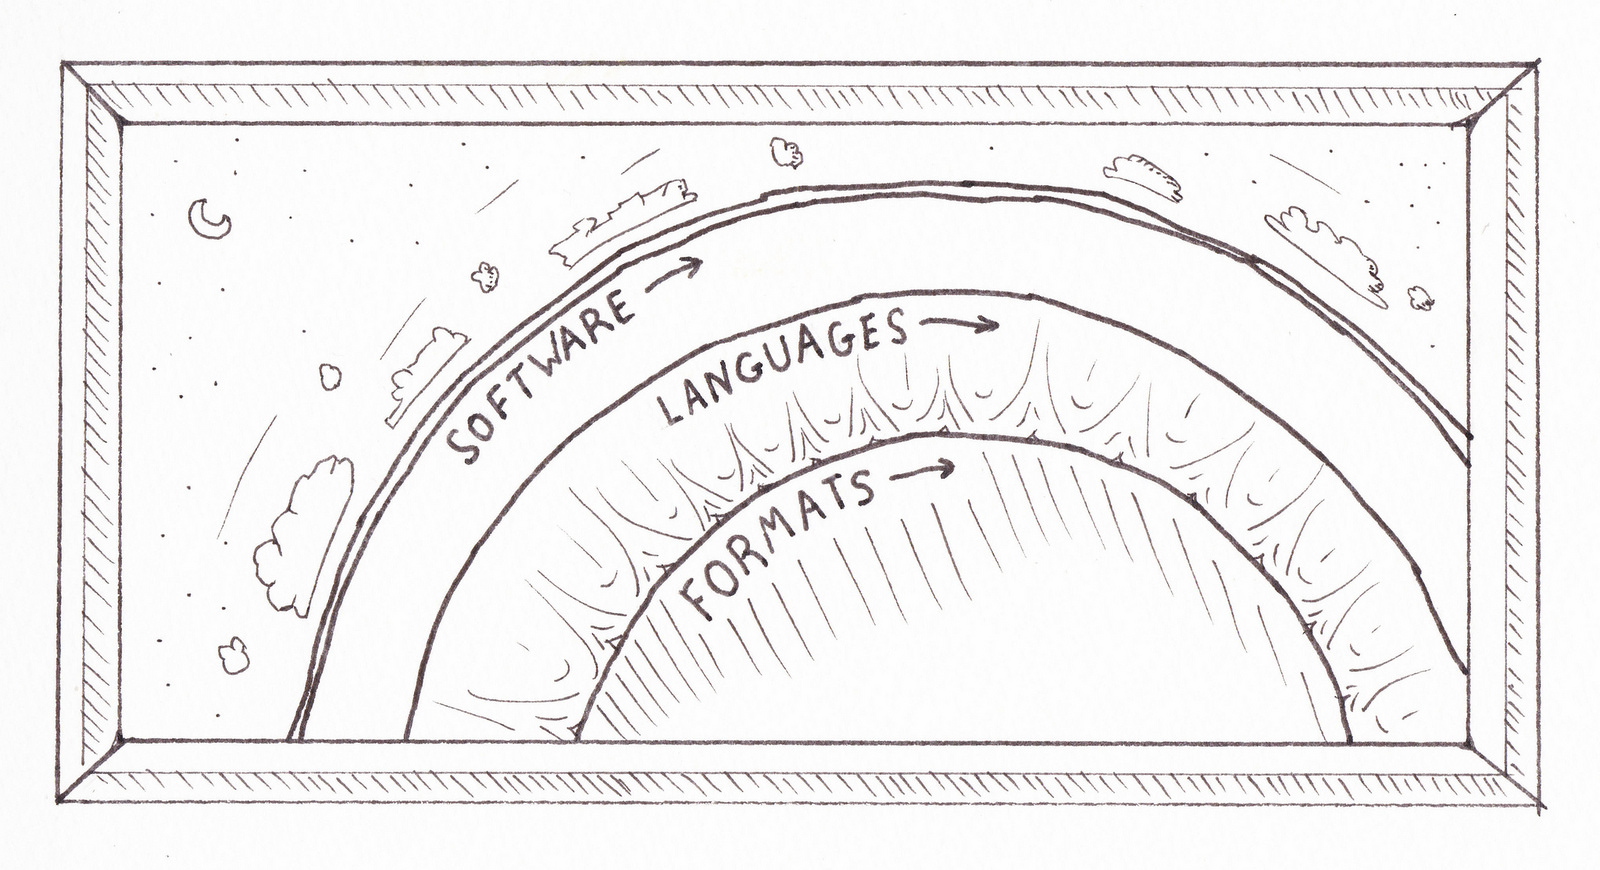 SOFTWARE →
LANGUAGES →
FORMATS →